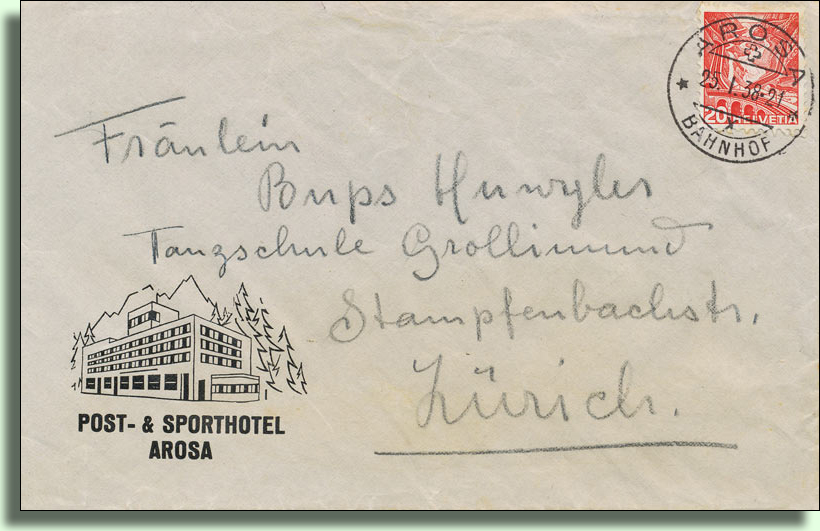 AROSA
25. I. 38-21
BAHNHOF
20 HELVETIA
Fräulein
Bups Huwyler
Tanzschule Grollimund
Stampfenbachstr.
Zürich.
POST- & SPORTHOTEL
AROSA